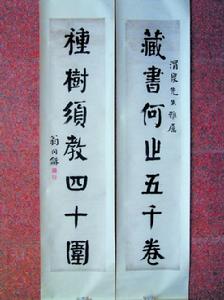 藏書何止五千卷
渭泉先生雅屬
種樹須教四十圍
翁同龢